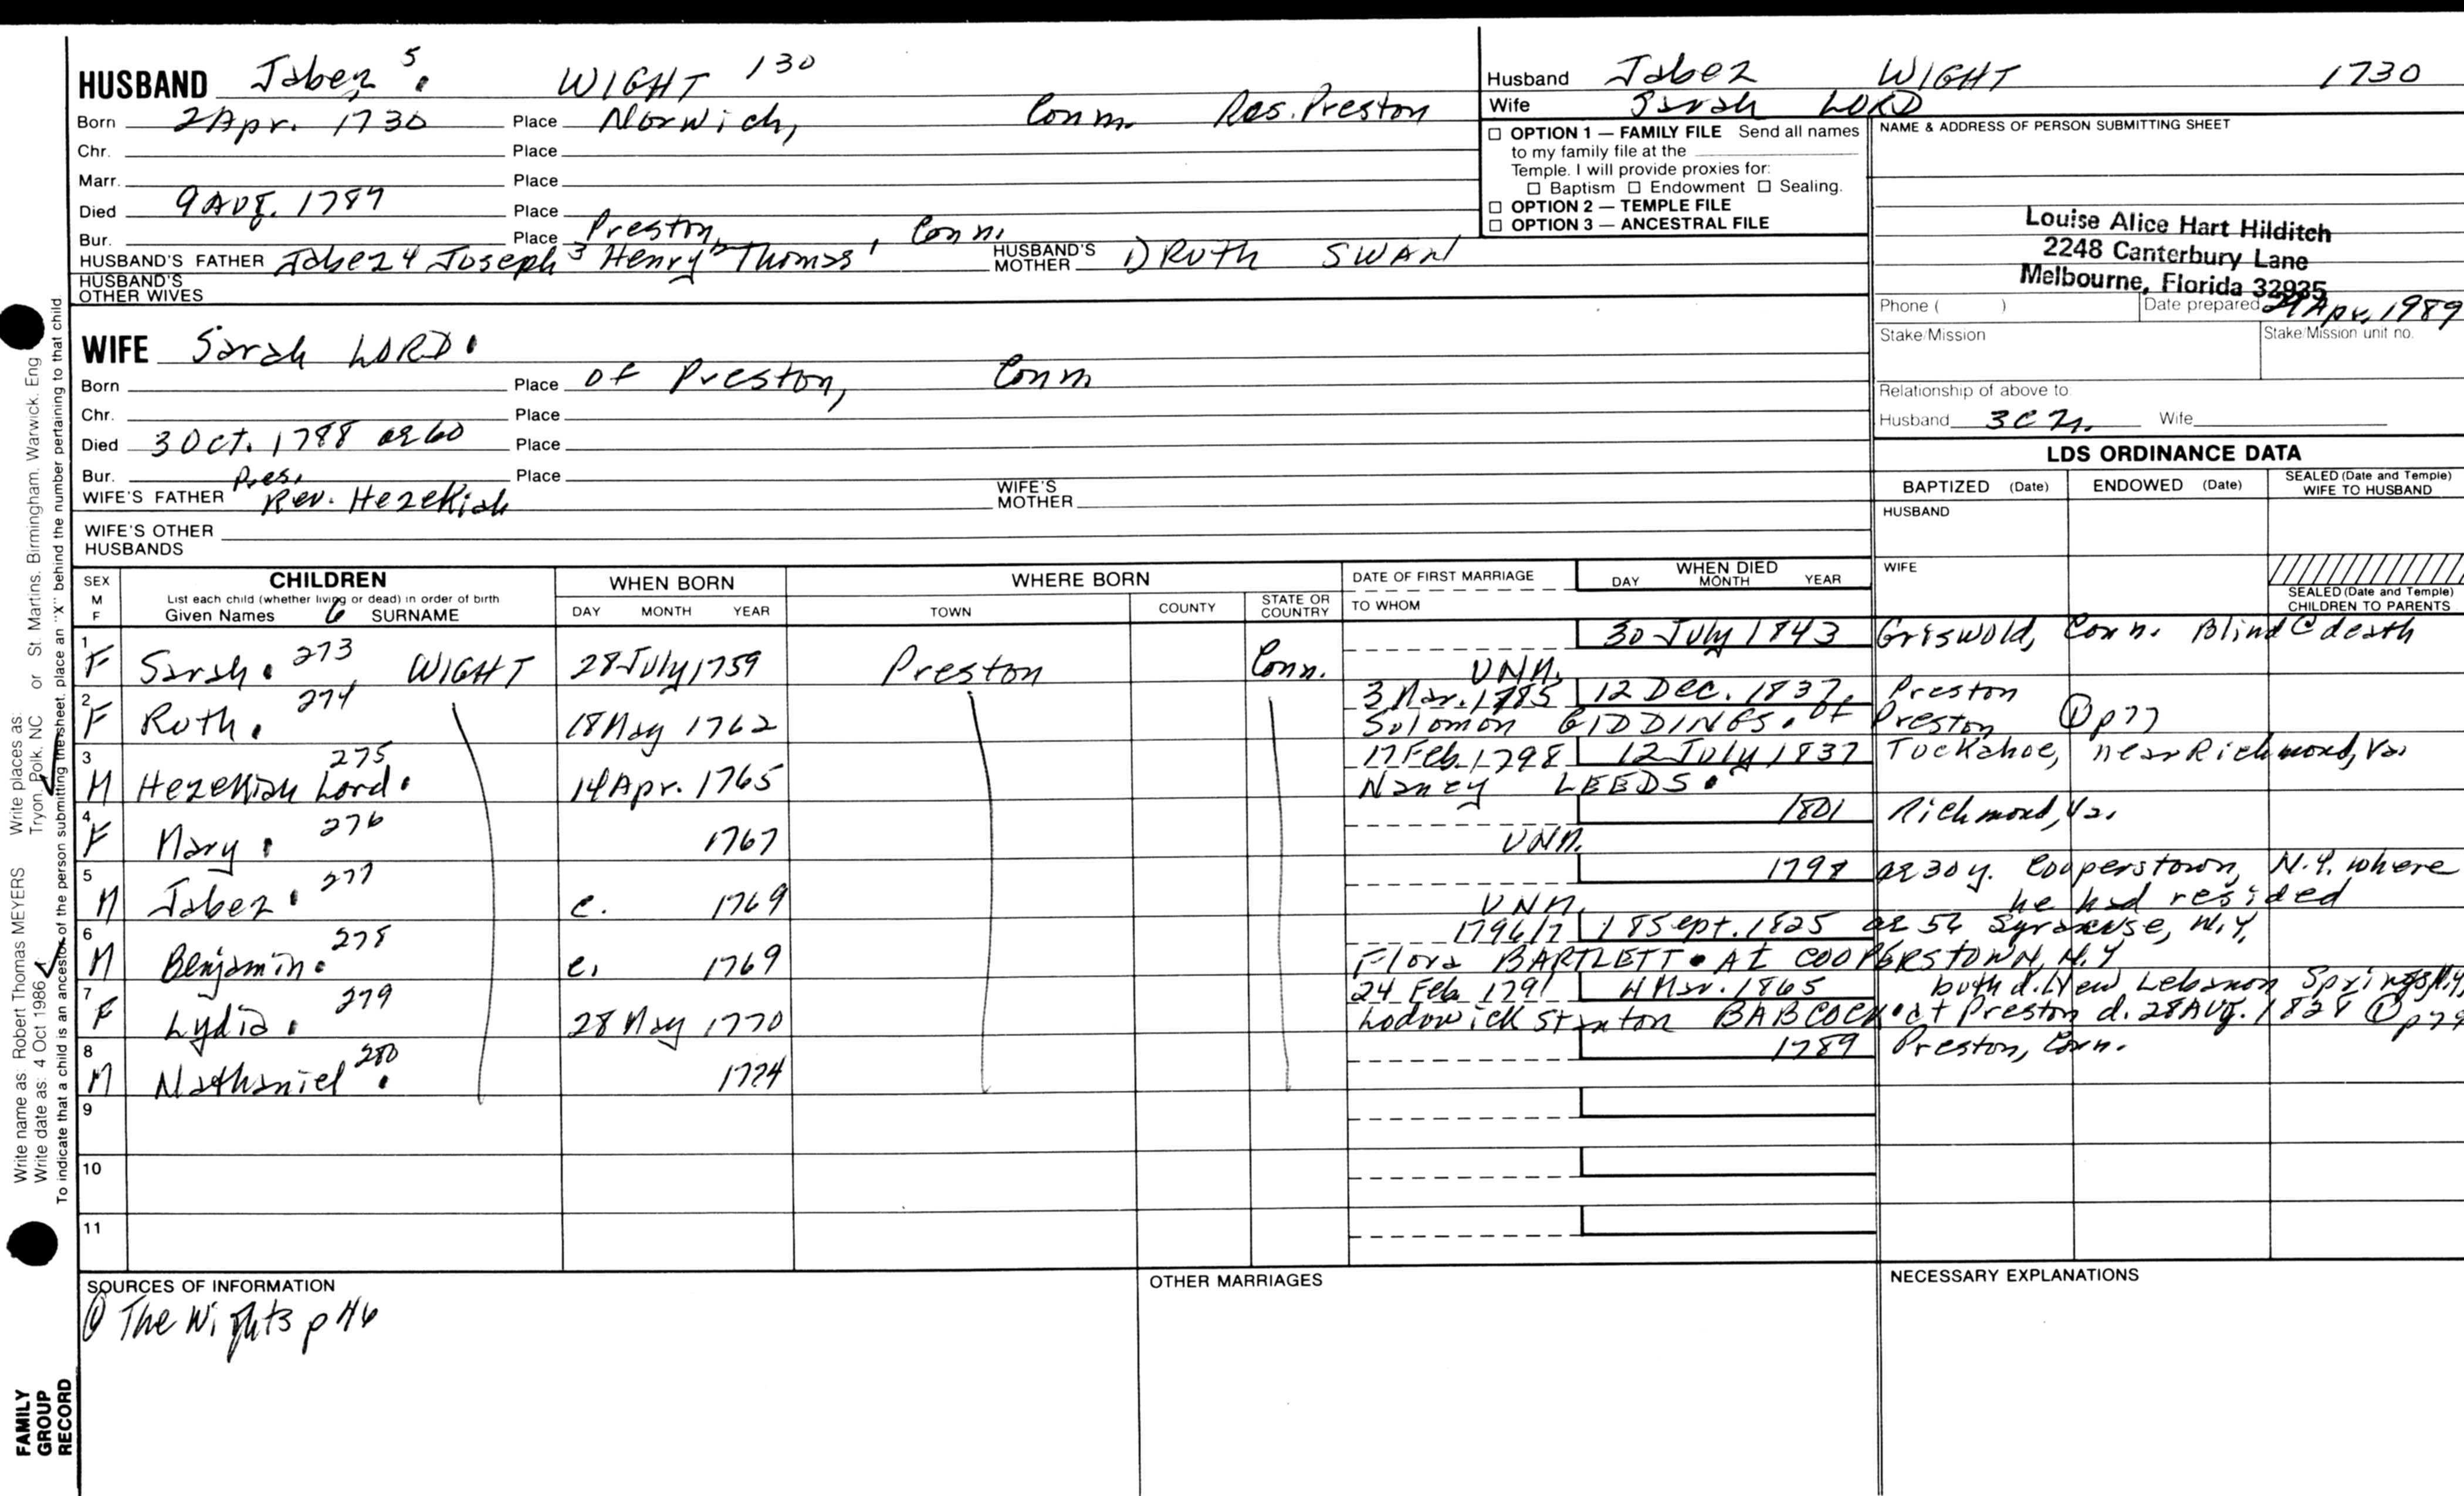 HUSBAND Jabez 5. WIGHT 130
Born 2 Apr. 1730 Place Norwich, Conn. Res. Preston
Chr. Place
Marr. Place
Died 9 Aug. 1789 Place
Bur. Place Preston, Conn.
HUSBAND'S FATHER Jabez 4 Joseph 3 Henry 2 Thomas 1 HUSBAND'S MOTHER 1) Ruth SWAN
HUSBAND'S OTHER WIVES
Husband Jabez WIGHT 1730
Wife Sarah LORD
☐ OPTION 1 — FAMILY FILE Send all names
to my family file at the
Temple. I will provide proxies for:
☐ Baptism ☐ Endowment ☐ Sealing.
☐ OPTION 2 — TEMPLE FILE
☐ OPTION 3 — ANCESTRAL FILE
NAME & ADDRESS OF PERSON SUBMITTING SHEET
Louise Alice Hart Hilditch
2248 Canterbury Lane
Melbourne, Florida 32935
Phone ( ) Date prepared 29 Apr. 1989
Stake/Mission Stake/Mission unit no.
Relationship of above to
Husband 3C Wife
WIFE Sarah LORD.
Born Place of Preston, Conn
Chr. Place
Died 3 Oct. 1788 ae 60 Place
Bur. Pres. Place
WIFE'S FATHER Rev. Hezekiah WIFE'S MOTHER
WIFE'S OTHER HUSBANDS
LDS ORDINANCE DATA
BAPTIZED (Date) ENDOWED (Date) SEALED (Date and Temple) WIFE TO HUSBAND
HUSBAND
WIFE
SEALED (Date and Temple) CHILDREN TO PARENTS
SEX M F
CHILDREN
List each child (whether living or dead) in order of birth
Given Names 6 SURNAME
WHEN BORN
DAY MONTH YEAR
WHERE BORN
TOWN COUNTY STATE OR COUNTRY
DATE OF FIRST MARRIAGE
TO WHOM
WHEN DIED
DAY MONTH YEAR
30 July 1843 Griswold, Conn. Blind @ death
1 F Sarah. 273 WIGHT 28 July 1759 Preston Conn. UNM.
3 Mar. 1785 12 Dec. 1837. Preston
2 F Ruth. 274 18 May 1762 Solomon GIDDINGS. of Preston ① p77
17 Feb. 1798 12 July 1837 Tuckahoe, near Richmond, Va.
3 M Hezekiah Lord. 275 14 Apr. 1765 Nancy LEEDS.
1801 Richmond, Va.
4 F Mary. 276 1767 UNM.
1798 ae 30 y. Cooperstown, N.Y. where
5 M Jabez. 277 c. 1769 UNM. he had resided
1796/7 18 Sept. 1825 ae 56 Syracuse, N.Y.
6 M Benjamin. 278 c. 1769 Flora BARTLETT. At COOPERSTOWN, N.Y
24 Feb 1791 4 Mar. 1865 both d. New Lebanon Springs, N.Y.
7 F Lydia. 279 28 May 1770 Lodowick Stanton BABCOCK. at Preston d. 28 Aug. 1828 ① p79
1789 Preston, Conn.
8 M Nathaniel. 280 1774
9
10
11
SOURCES OF INFORMATION
① The Wights p 46
OTHER MARRIAGES
NECESSARY EXPLANATIONS
Write name as: Robert Thomas MEYERS Write places as: St. Martins, Birmingham, Warwick, Eng
Write date as: 4 Oct 1986 Tryon, Polk, NC or
To indicate that a child is an ancestor of the person submitting the sheet, place an "X" behind the number pertaining to that child.
FAMILY
GROUP
RECORD